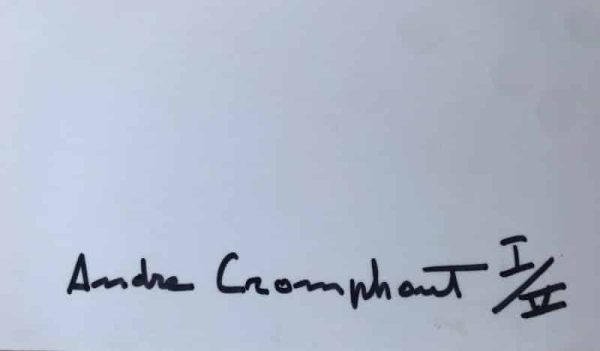 Andre Cromphout I/V